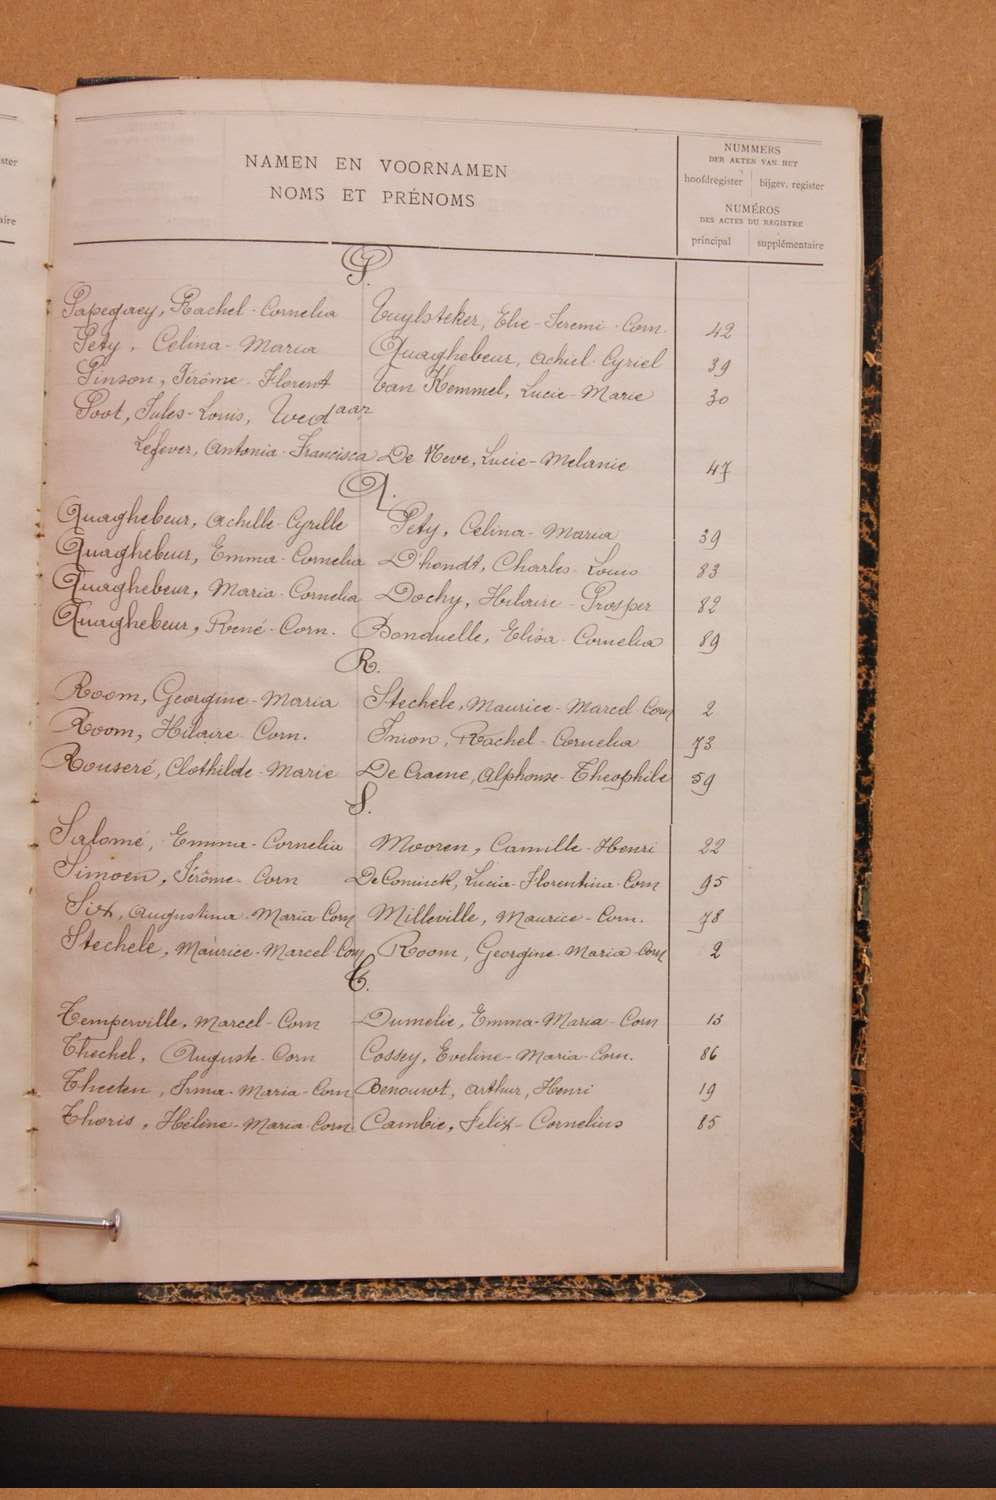 ster
aire
NAMEN EN VOORNAMEN
NOMS ET PRÉNOMS
NUMMERS
DER AKTEN VAN HET
hoofdregister bijgev. register
NUMÉROS
DES ACTES DU REGISTRE
principal supplémentaire
P.
Papegaey, Rachel-Cornelia Vuylsteker, Elie-Jeremi-Corn. 42
Pety, Celina-Maria Quaghebeur, Achiel-Cyriel 39
Pinson, Jérôme-Florent Van Kemmel, Lucie-Marie 30
Poot, Jules-Louis, Wed aar
Lefever, Antonia-Francisca De Neve, Lucie-Melanie 47
Q.
Quaghebeur, Achille-Cyrille Pety, Celina-Maria 39
Quaghebeur, Emma-Cornelia D'hondt, Charles-Louis 83
Quaghebeur, Maria-Cornelia Dochy, Hilaire-Prosper 82
Quaghebeur, René-Corn. Bonduelle, Elisa-Cornelia 89
R.
Room, Georgine-Maria Stechele, Maurice-Marcel-Corn 2
Room, Hilaire-Corn. Inion, Rachel-Cornelia 73
Rouseré, Clothilde-Marie De Craene, Alphonse-Theophile 59
S.
Salomé, Emma-Cornelia Mooren, Camille-Henri 22
Simoen, Jérôme-Corn De Coninck, Lucia-Florentina-Corn 95
Six, Augustina-Maria-Corn Milleville, Maurice-Corn. 78
Stechele, Maurice-Marcel-Corn Room, Georgine-Maria-Corn 2
T.
Temperville, Marcel-Corn Dumelie, Emma-Maria-Corn 13
Thechel, Auguste-Corn Cossey, Eveline-Maria-Corn. 86
Theeten, Irma-Maria-Corn Benouwt, Arthur, Henri 19
Thoris, Hélène-Maria-Corn. Cambie, Felix-Cornelius 85